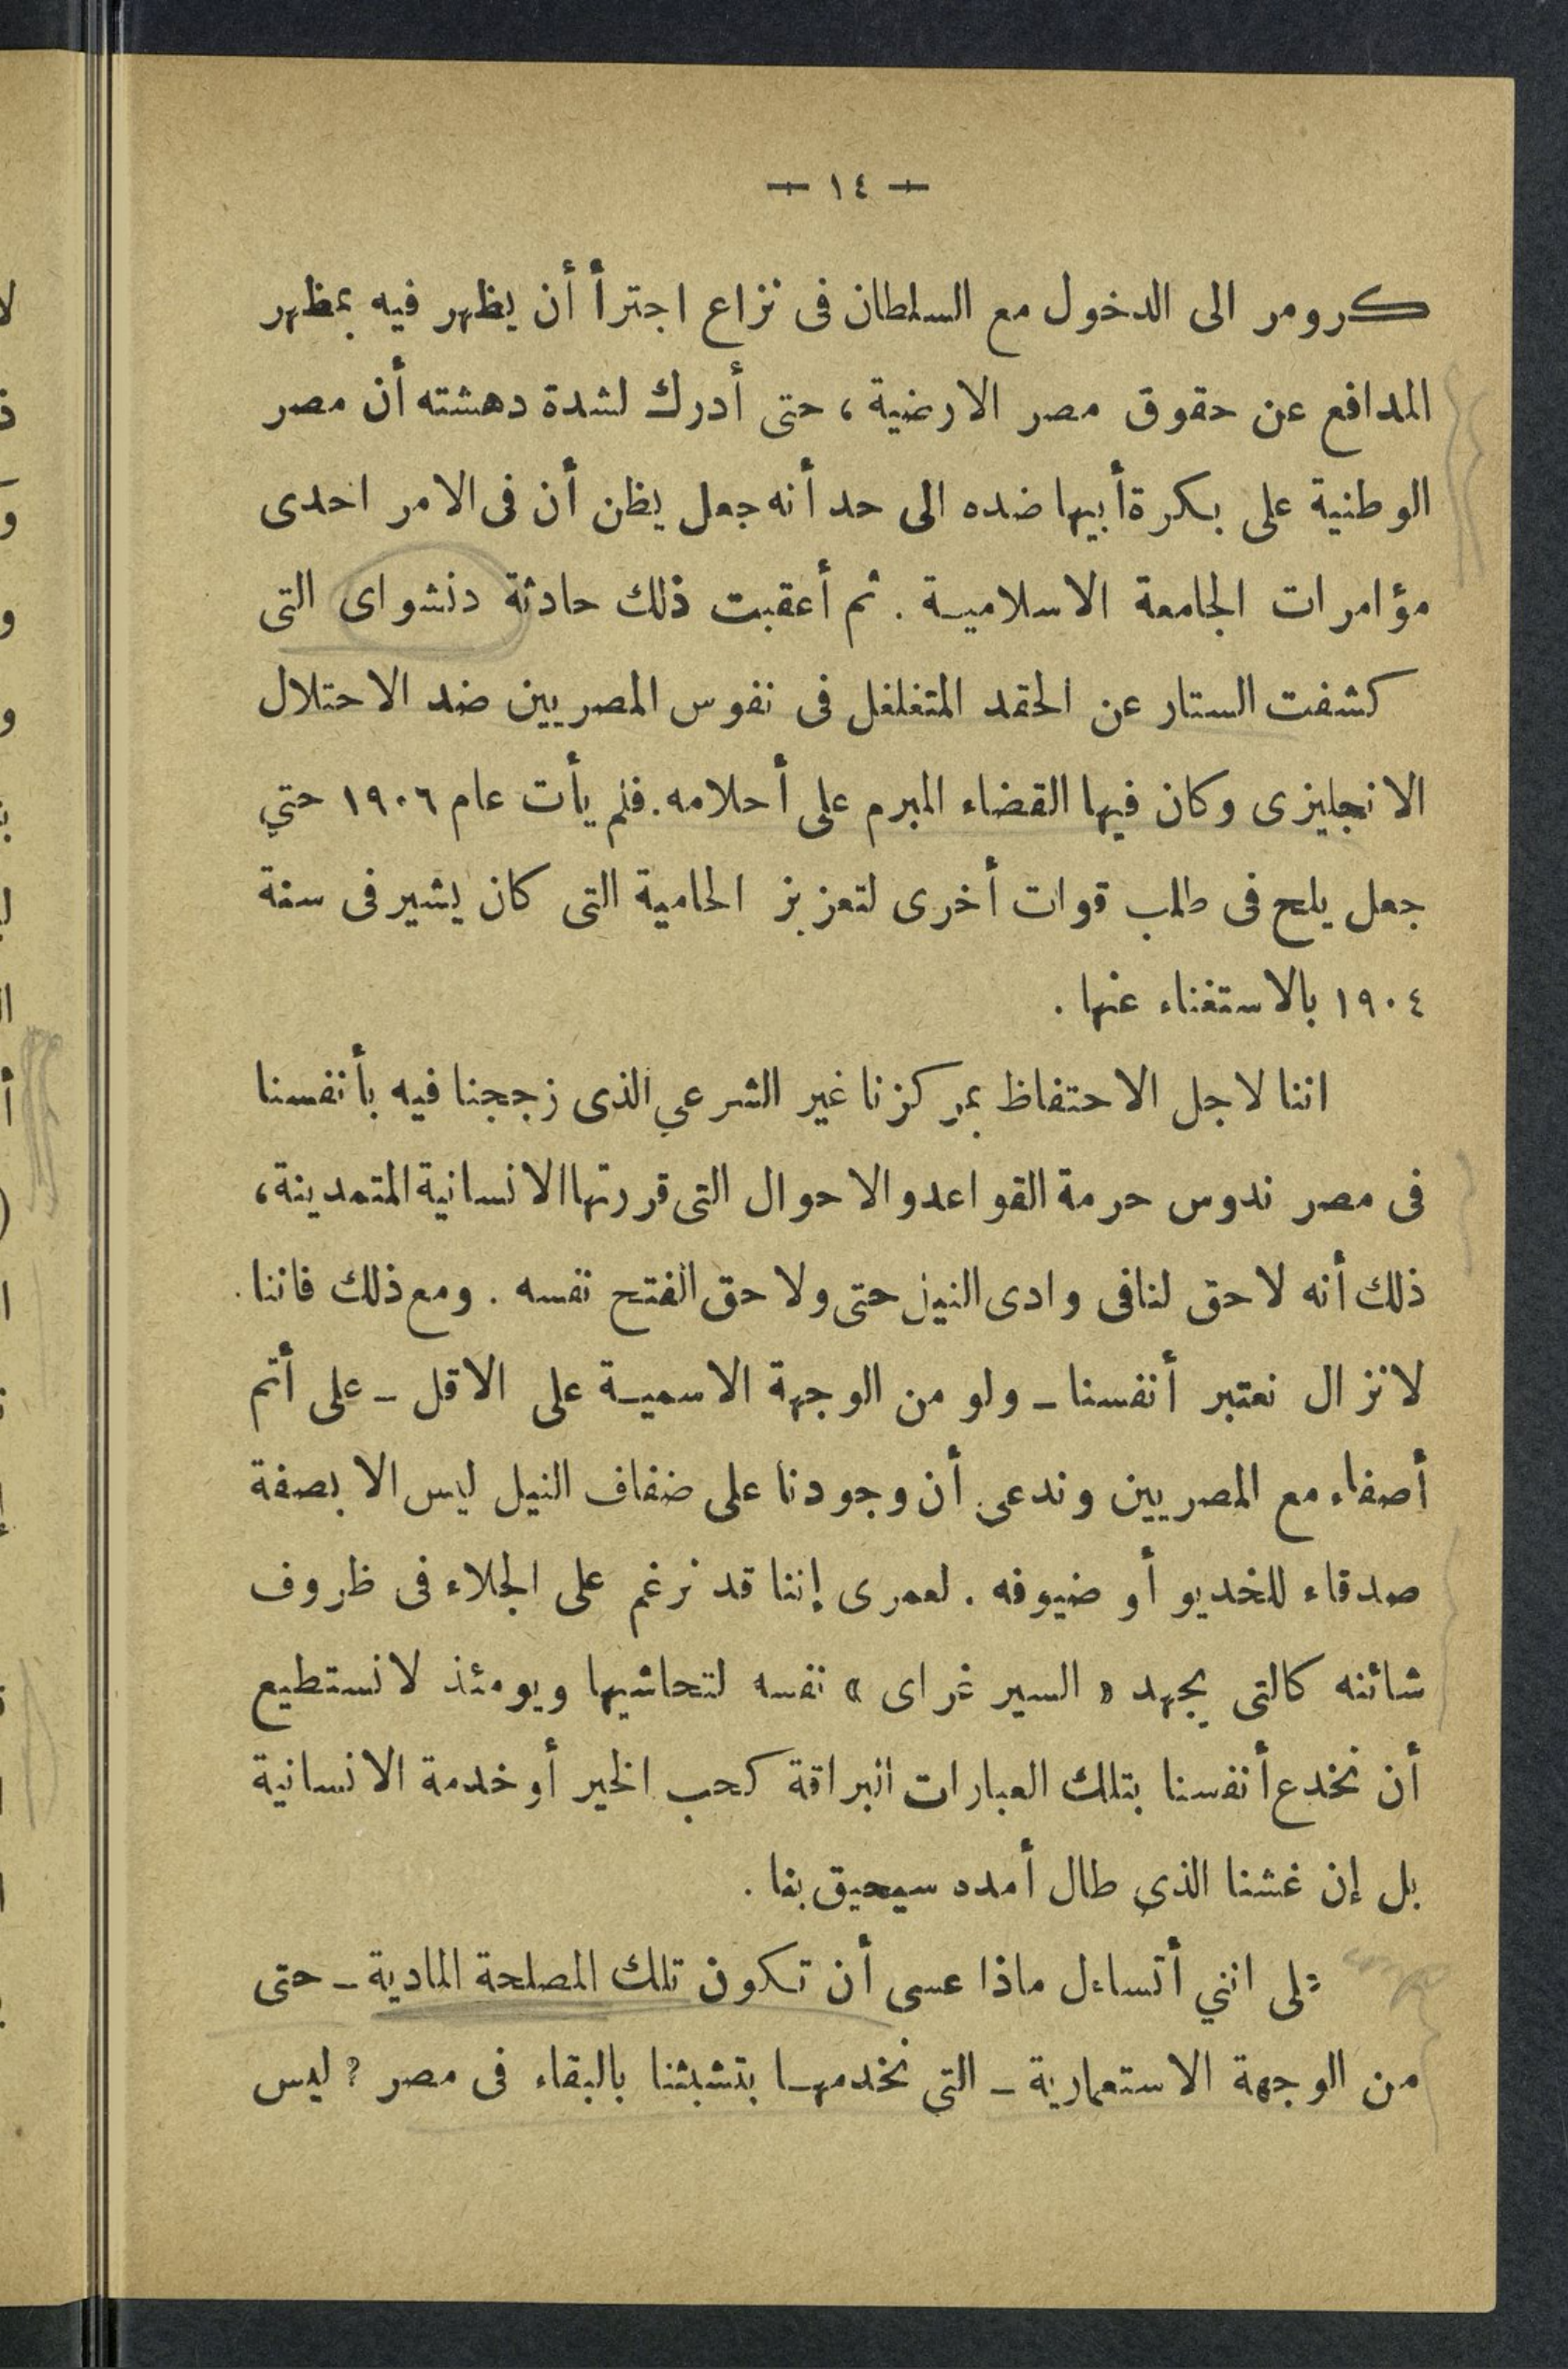 — ١٤ —
كرومر الى الدخول مع السلطان فى نزاع اجترأ أن يظهر فيه بمظهر
المدافع عن حقوق مصر الارضية ، حتى أدرك لشدة دهشته أن مصر
الوطنية على بكرة أبيها ضده الى حد أنه جعل يظن أن فى الامر احدى
مؤامرات الجامعة الاسلامية . ثم أعقبت ذلك حادثة دنشواى التى
كشفت الستار عن الحقد المتغلغل فى نفوس المصريين ضد الاحتلال
الانجليزى وكان فيها القضاء المبرم على أحلامه . فلم يأت عام ١٩٠٦ حتي
جعل يلح فى طلب قوات أخرى لتعزيز الحامية التى كان يشير فى سنة
١٩٠٤ بالاستغناء عنها .
اننا لاجل الاحتفاظ بمركزنا غير الشرعي الذى زججنا فيه بأنفسنا
فى مصر ندوس حرمة القواعد والاحوال التى قررتها الانسانية المتمدينة ،
ذلك أنه لا حق لنا فى وادى النيل حتى ولا حق الفتح نفسه . ومع ذلك فاننا
لا نزال نعتبر أنفسنا ـ ولو من الوجهة الاسمية على الاقل ـ على أتم
أصفاء مع المصريين وندعى أن وجودنا على ضفاف النيل ليس الا بصفة
صدقاء للخديو أو ضيوفه . لعمرى إننا قد نرغم على الجلاء فى ظروف
شائنه كالتى يجهد « السير غراى » نفسه لتحاشيها ويومئذ لا نستطيع
أن نخدع أنفسنا بتلك العبارات البراقة كحب الخير أو خدمة الانسانية
بل إن غشنا الذى طال أمده سيحيق بنا .
على انني أتساءل ماذا عسى أن تكون تلك المصلحة المادية ـ حتى
من الوجهة الاستعمارية ـ التي نخدمها بتشبثنا بالبقاء فى مصر ؟ ليس